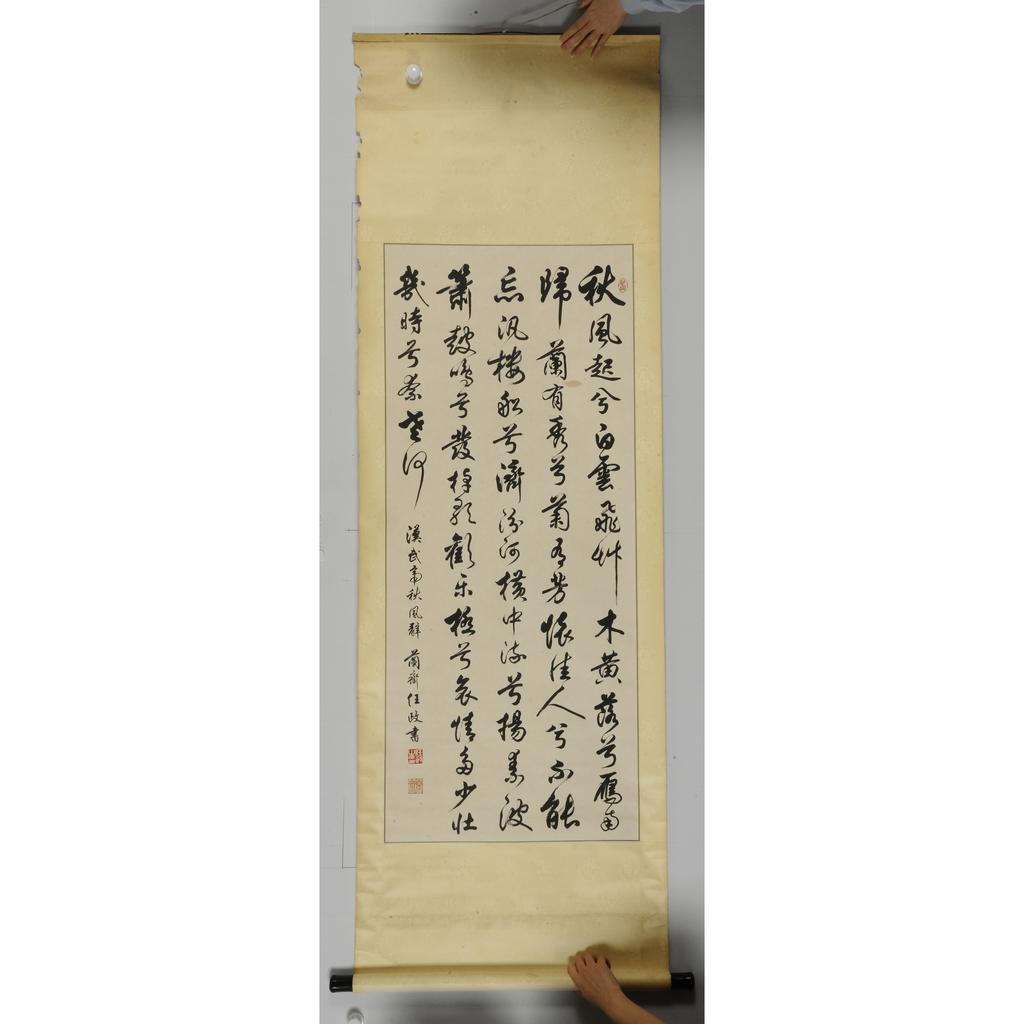 秋風起兮白雲飛艸木黄落兮雁南
歸蘭有秀兮菊有芳懷佳人兮不能
忘汎樓船兮濟汾河横中流兮揚素波
簫鼓鳴兮發棹歌歡樂極兮哀情多少壯
幾時兮奈老何
漢武帝秋風辭 蘭齋任政書